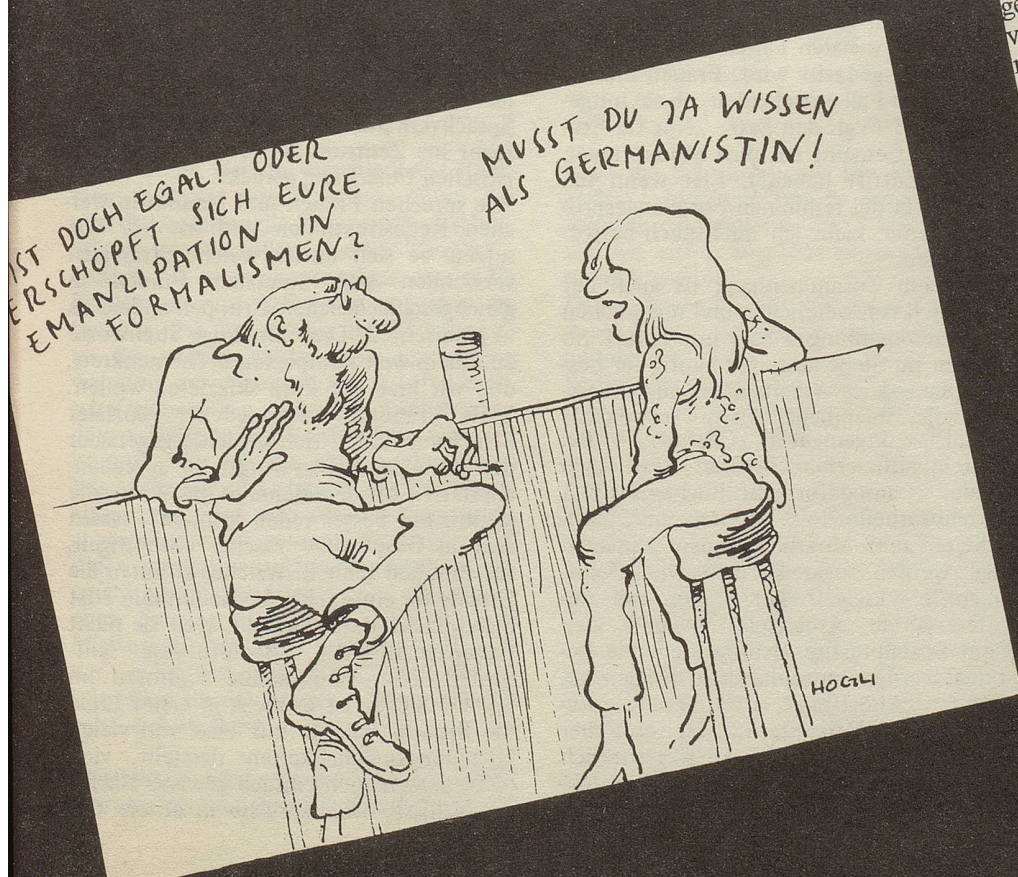 IST DOCH EGAL! ODER
ERSCHÖPFT SICH EURE
EMANZIPATION IN
FORMALISMEN?
MUSST DU JA WISSEN
ALS GERMANISTIN!
HOGLI